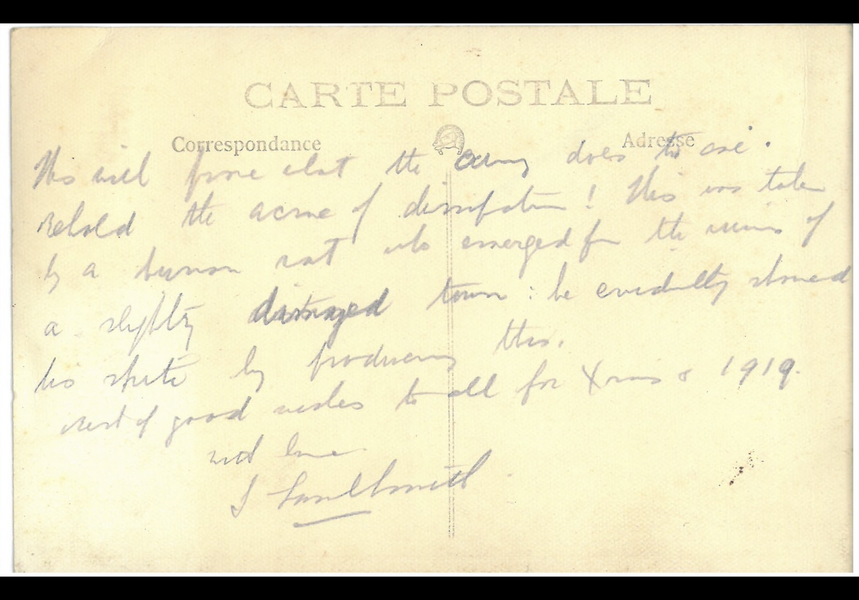 CARTE POSTALE
Correspondance Adresse
This will prove what the army does to one.
Behold the acme of dissipation! This was taken
by a human rat who emerged from the ruins of
a slightly damaged town: he evidently showed
his spite by producing this.
Best of good wishes to all for Xmas & 1919.
and love